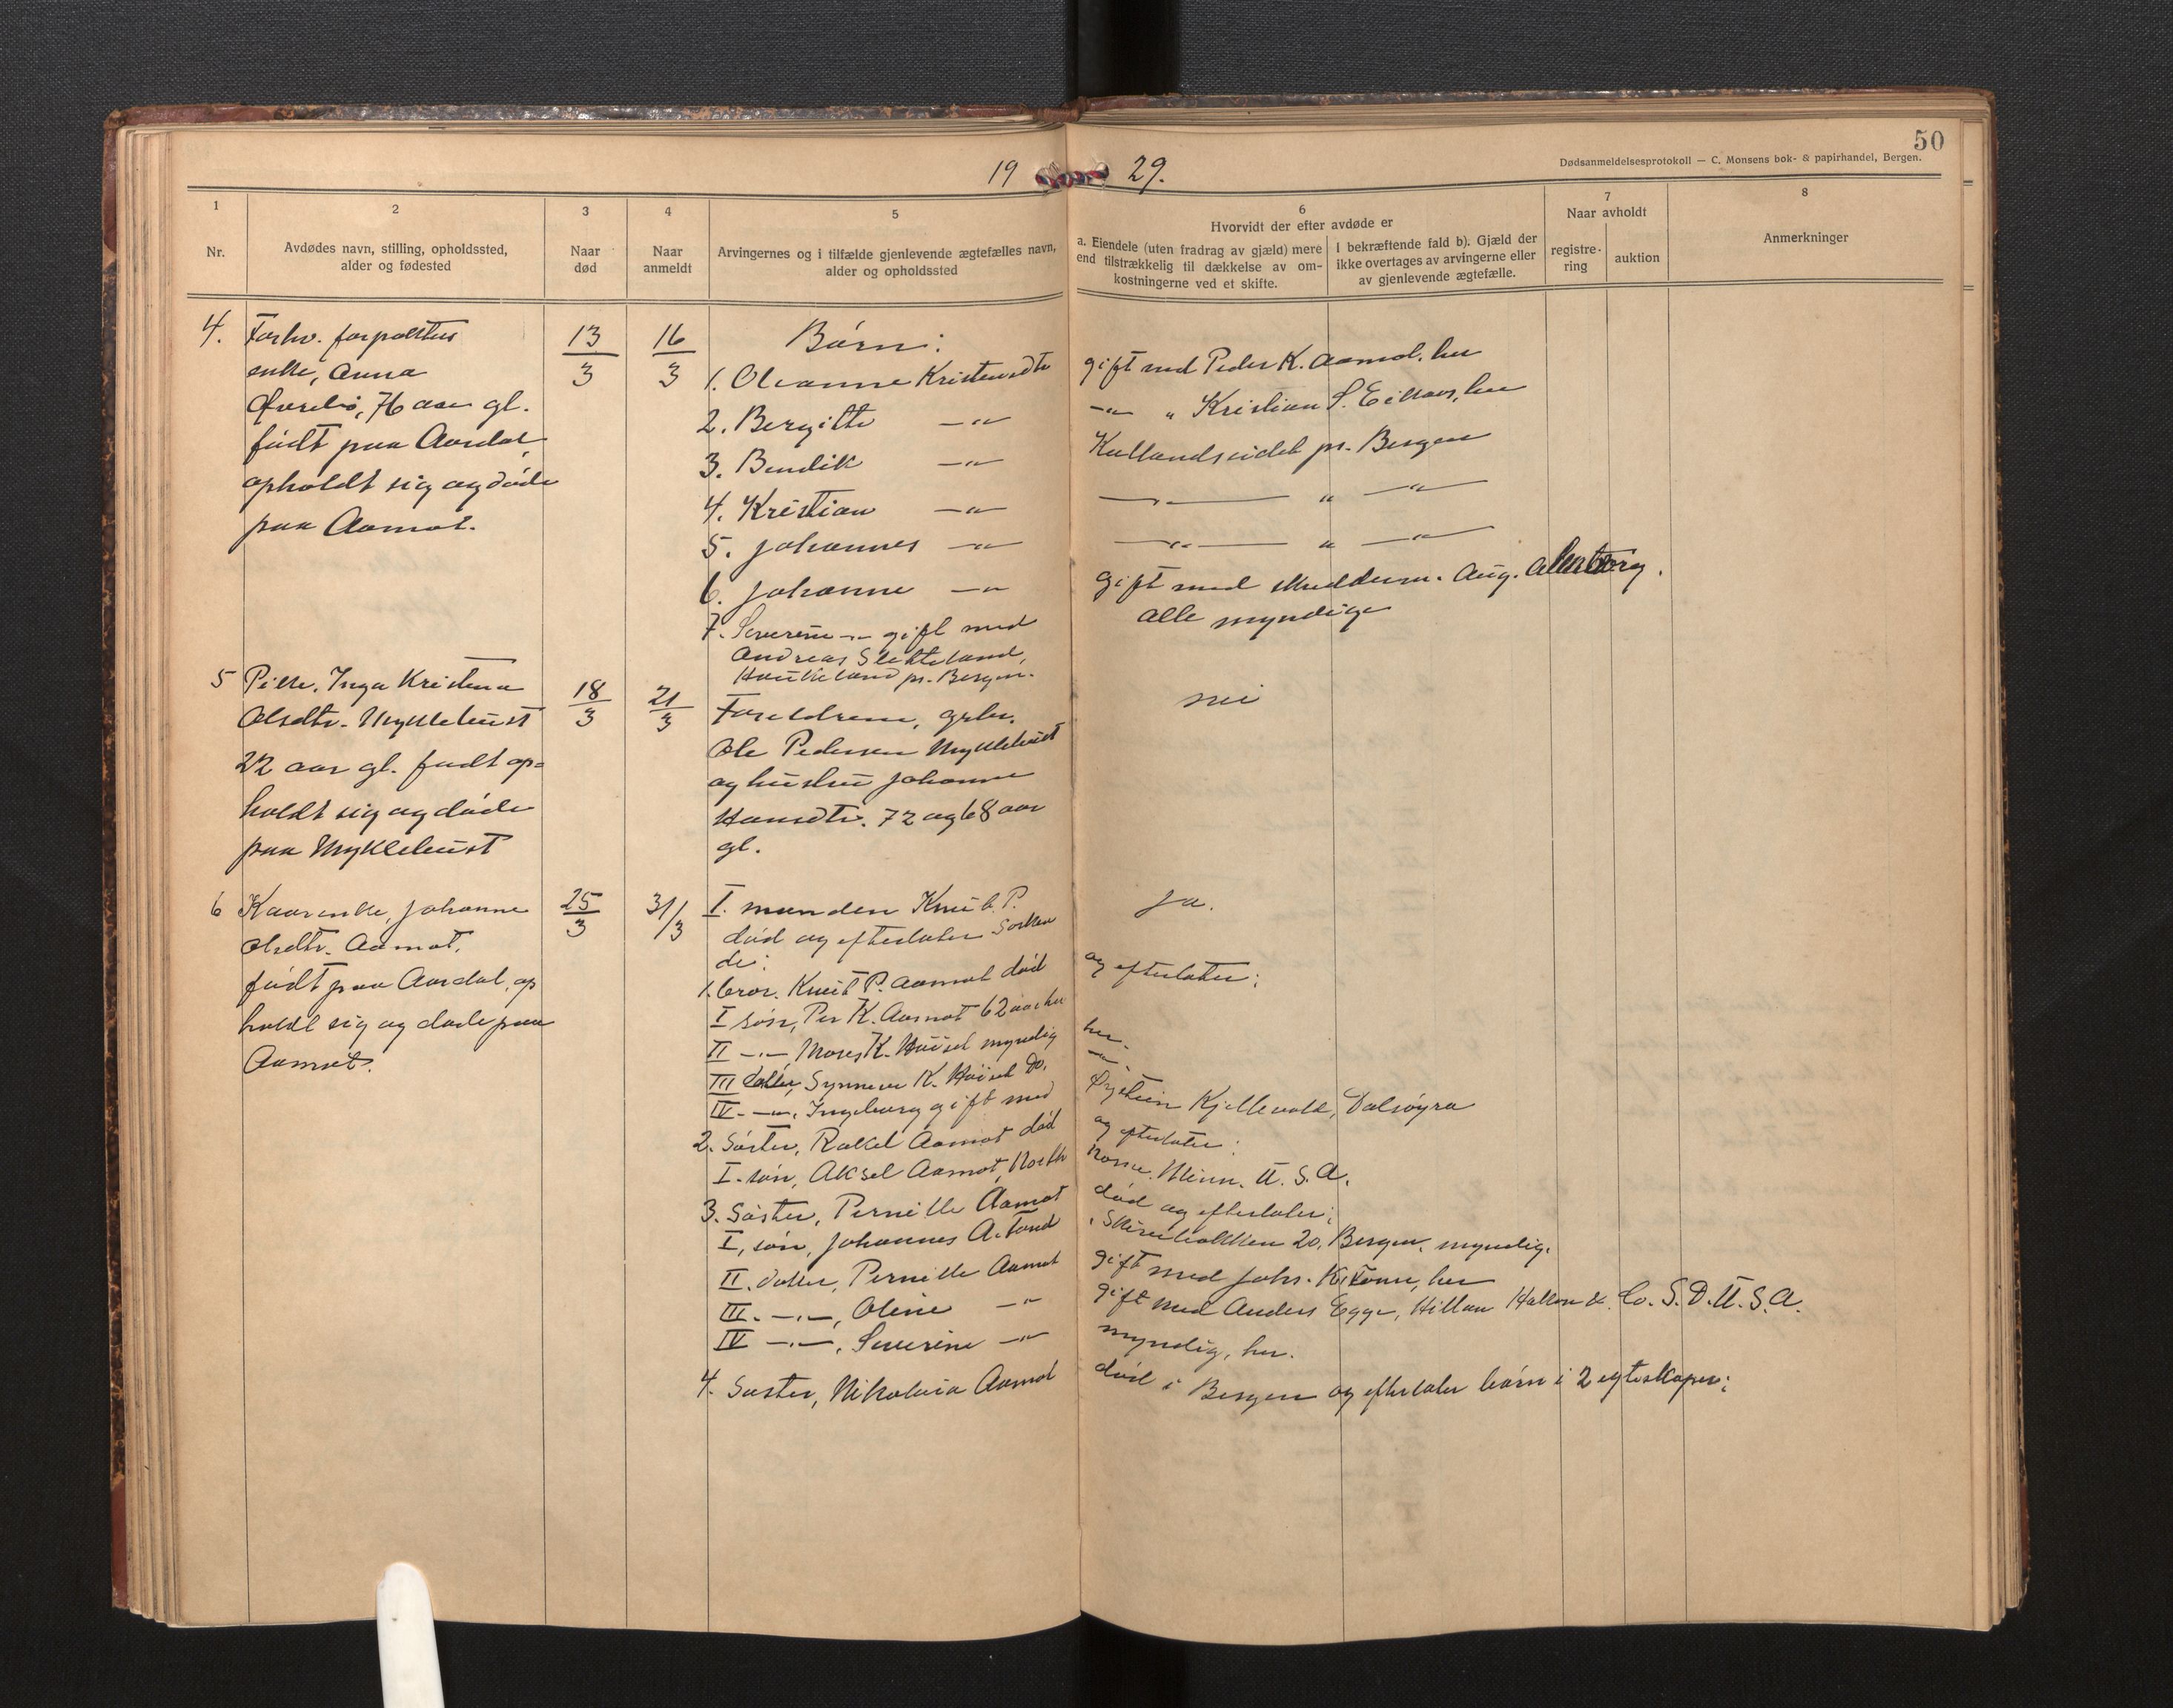 50
Dødsanmeldelsesprotokoll — C. Monsens bok- & papirhandel, Bergen.
19 29.
1 2 3 4 5 6 7 8
Nr.
Avdødes navn, stilling, opholdssted,
alder og fødested
Naar
død
Naar
anmeldt
Arvingernes og i tilfælde gjenlevende ægtefælles navn,
alder og opholdssted
Hvorvidt der efter avdøde er
a. Eiendele (uten fradrag av gjæld) mere
end tilstrækkelig til dækkelse av om-
kostningerne ved et skifte.
I bekræftende fald b). Gjæld der
ikke overtages av arvingerne eller
av gjenlevende ægtefælle.
Naar avholdt
registre-
ring
auktion
Anmerkninger
4. Forhv. forpakters
enke, Anna
76 aar gl.
født paa Aardal,
opholdt sig og døde
paa Aamot.
13/3
16/3
Børn:
1. Oleanne Kristensdtr gift med Peder K. Aamot, her
2. Bergitte —"— —"— " Kristian S. her
3. Bendik —"— pr. Bergen
4. Kristian —"— —"— " —"—
5. Johannes —"— —"— " —"—
6. Johanne —"— gift med Aug.
7. Severine —"— gift med alle myndige
Andreas
Haukeland pr. Bergen.
5 Pike, Inga Kristina
Olsdtr. Myklebust
22 aar gl. født op=
holdt sig og døde
paa Myklebust
18/3
21/3
Foreldrene, grbr.
Ole Pedersen Myklebust
og hustru Johanne
Hansdtr. 72 og 68 aar
gl.
nei
6 Kaarenke, Johanne
Olsdtr. Aamot,
født paa Aardal, op
holdt sig og døde paa
Aamot.
25/3
31/3
I. manden Knut P. ja.
død og efterlater
de:
1. bror. Knut P. Aamot død og efterlater:
I søn, Per K. Aamot 62 aar her
II —"— Moses K. myndig her.
III datter, Synneve K. Do. —"—
IV. —"—, Ingeborg gift med Øystein Kjellevold, Dalsøyra
2. Søster, Rakel Aamot død og efterlater:
I. søn, Aksel Aamot, North Minn. U.S.A.
3. Søster, Pernille Aamot død og efterlater;
I, søn, Johannes A. 20, Bergen, myndig.
II. datter, Pernille Aamot gift med Johs. K. her
III. —"—, Oline —"— gift med Anders Egge, Co. S.D. U.S.A.
IV —"—, Severine —"— myndig, her.
4. Søster, Nikolaia Aamot død i Bergen og efterlater børn i 2 egteskaper: